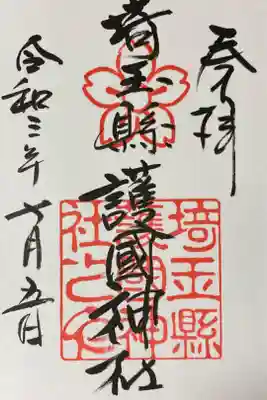 奉拝
埼玉縣護國神社
埼玉縣
護國神
社之印
令和三年 十月五日